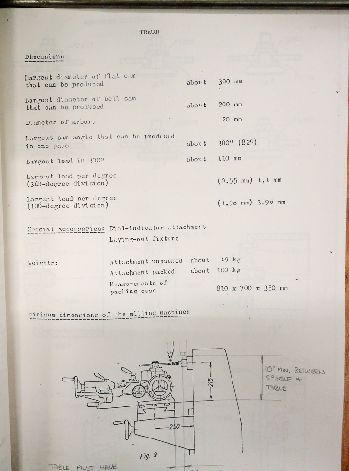 Dimensions
Largest diameter of flat cam
that can be produced about 300 mm
Largest diameter of bell cam
that can be produced about 200 mm
Diameter of arbor: 20 mm
Largest cam angle that can be produced
in one pass about 300° (820)
Largest lead in 300° about 120 mm
Largest lead per degree
(360-degree division) (0.55 mm) 1,1 mm
Largest lead per degree
(100-degree division)
Special accessories: Dial-indicator attachment
Laying-out fixture
Weights: Attachment unpacked about kg
Attachment packed about 100 kg
Measurements of
packing case 810 x 700 x 350 mm
Minimum dimensions of the milling machine:
10" MIN. BETWEEN
SPINDLE &
TABLE
250
Fig. 2
TABLE MUST HAVE